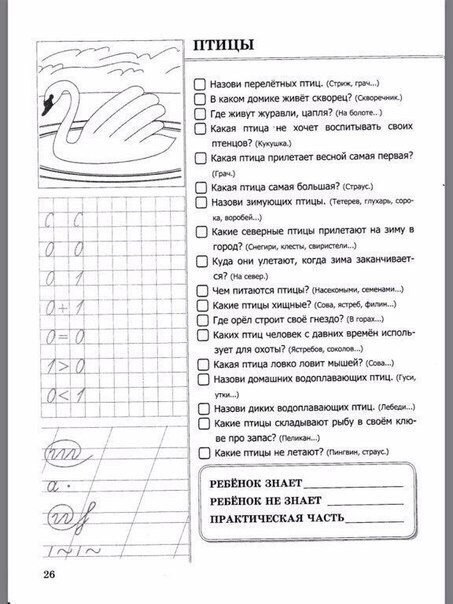 ПТИЦЫ
Назови перелётных птиц. (Стриж, грач...)
В каком домике живёт скворец? (Скворечник.)
Где живут журавли, цапля? (На болоте...)
Какая птица не хочет воспитывать своих
птенцов? (Кукушка.)
Какая птица прилетает весной самая первая?
(Грач.)
Какая птица самая большая? (Страус.)
Назови зимующих птицы. (Тетерев, глухарь, соро-
ка, воробей...)
Какие северные птицы прилетают на зиму в
город? (Снегири, клесты, свиристели...)
Куда они улетают, когда зима заканчивает-
ся? (На север.)
Чем питаются птицы? (Насекомыми, семенами...)
Какие птицы хищные? (Сова, ястреб, филин...)
Где орёл строит своё гнездо? (В горах...)
Каких птиц человек с давних времён исполь-
зует для охоты? (Ястребов, соколов...)
Какая птица ловко ловит мышей? (Сова...)
Назови домашних водоплавающих птиц. (Гуси,
утки...)
Назови диких водоплавающих птиц. (Лебеди...)
Какие птицы складывают рыбу в своём клю-
ве про запас? (Пеликан...)
Какие птицы не летают? (Пингвин, страус.)
РЕБЁНОК ЗНАЕТ
РЕБЁНОК НЕ ЗНАЕТ
ПРАКТИЧЕСКАЯ ЧАСТЬ
С С
0 0
0 1
0+1
0=0
1>0
0<1
а
26